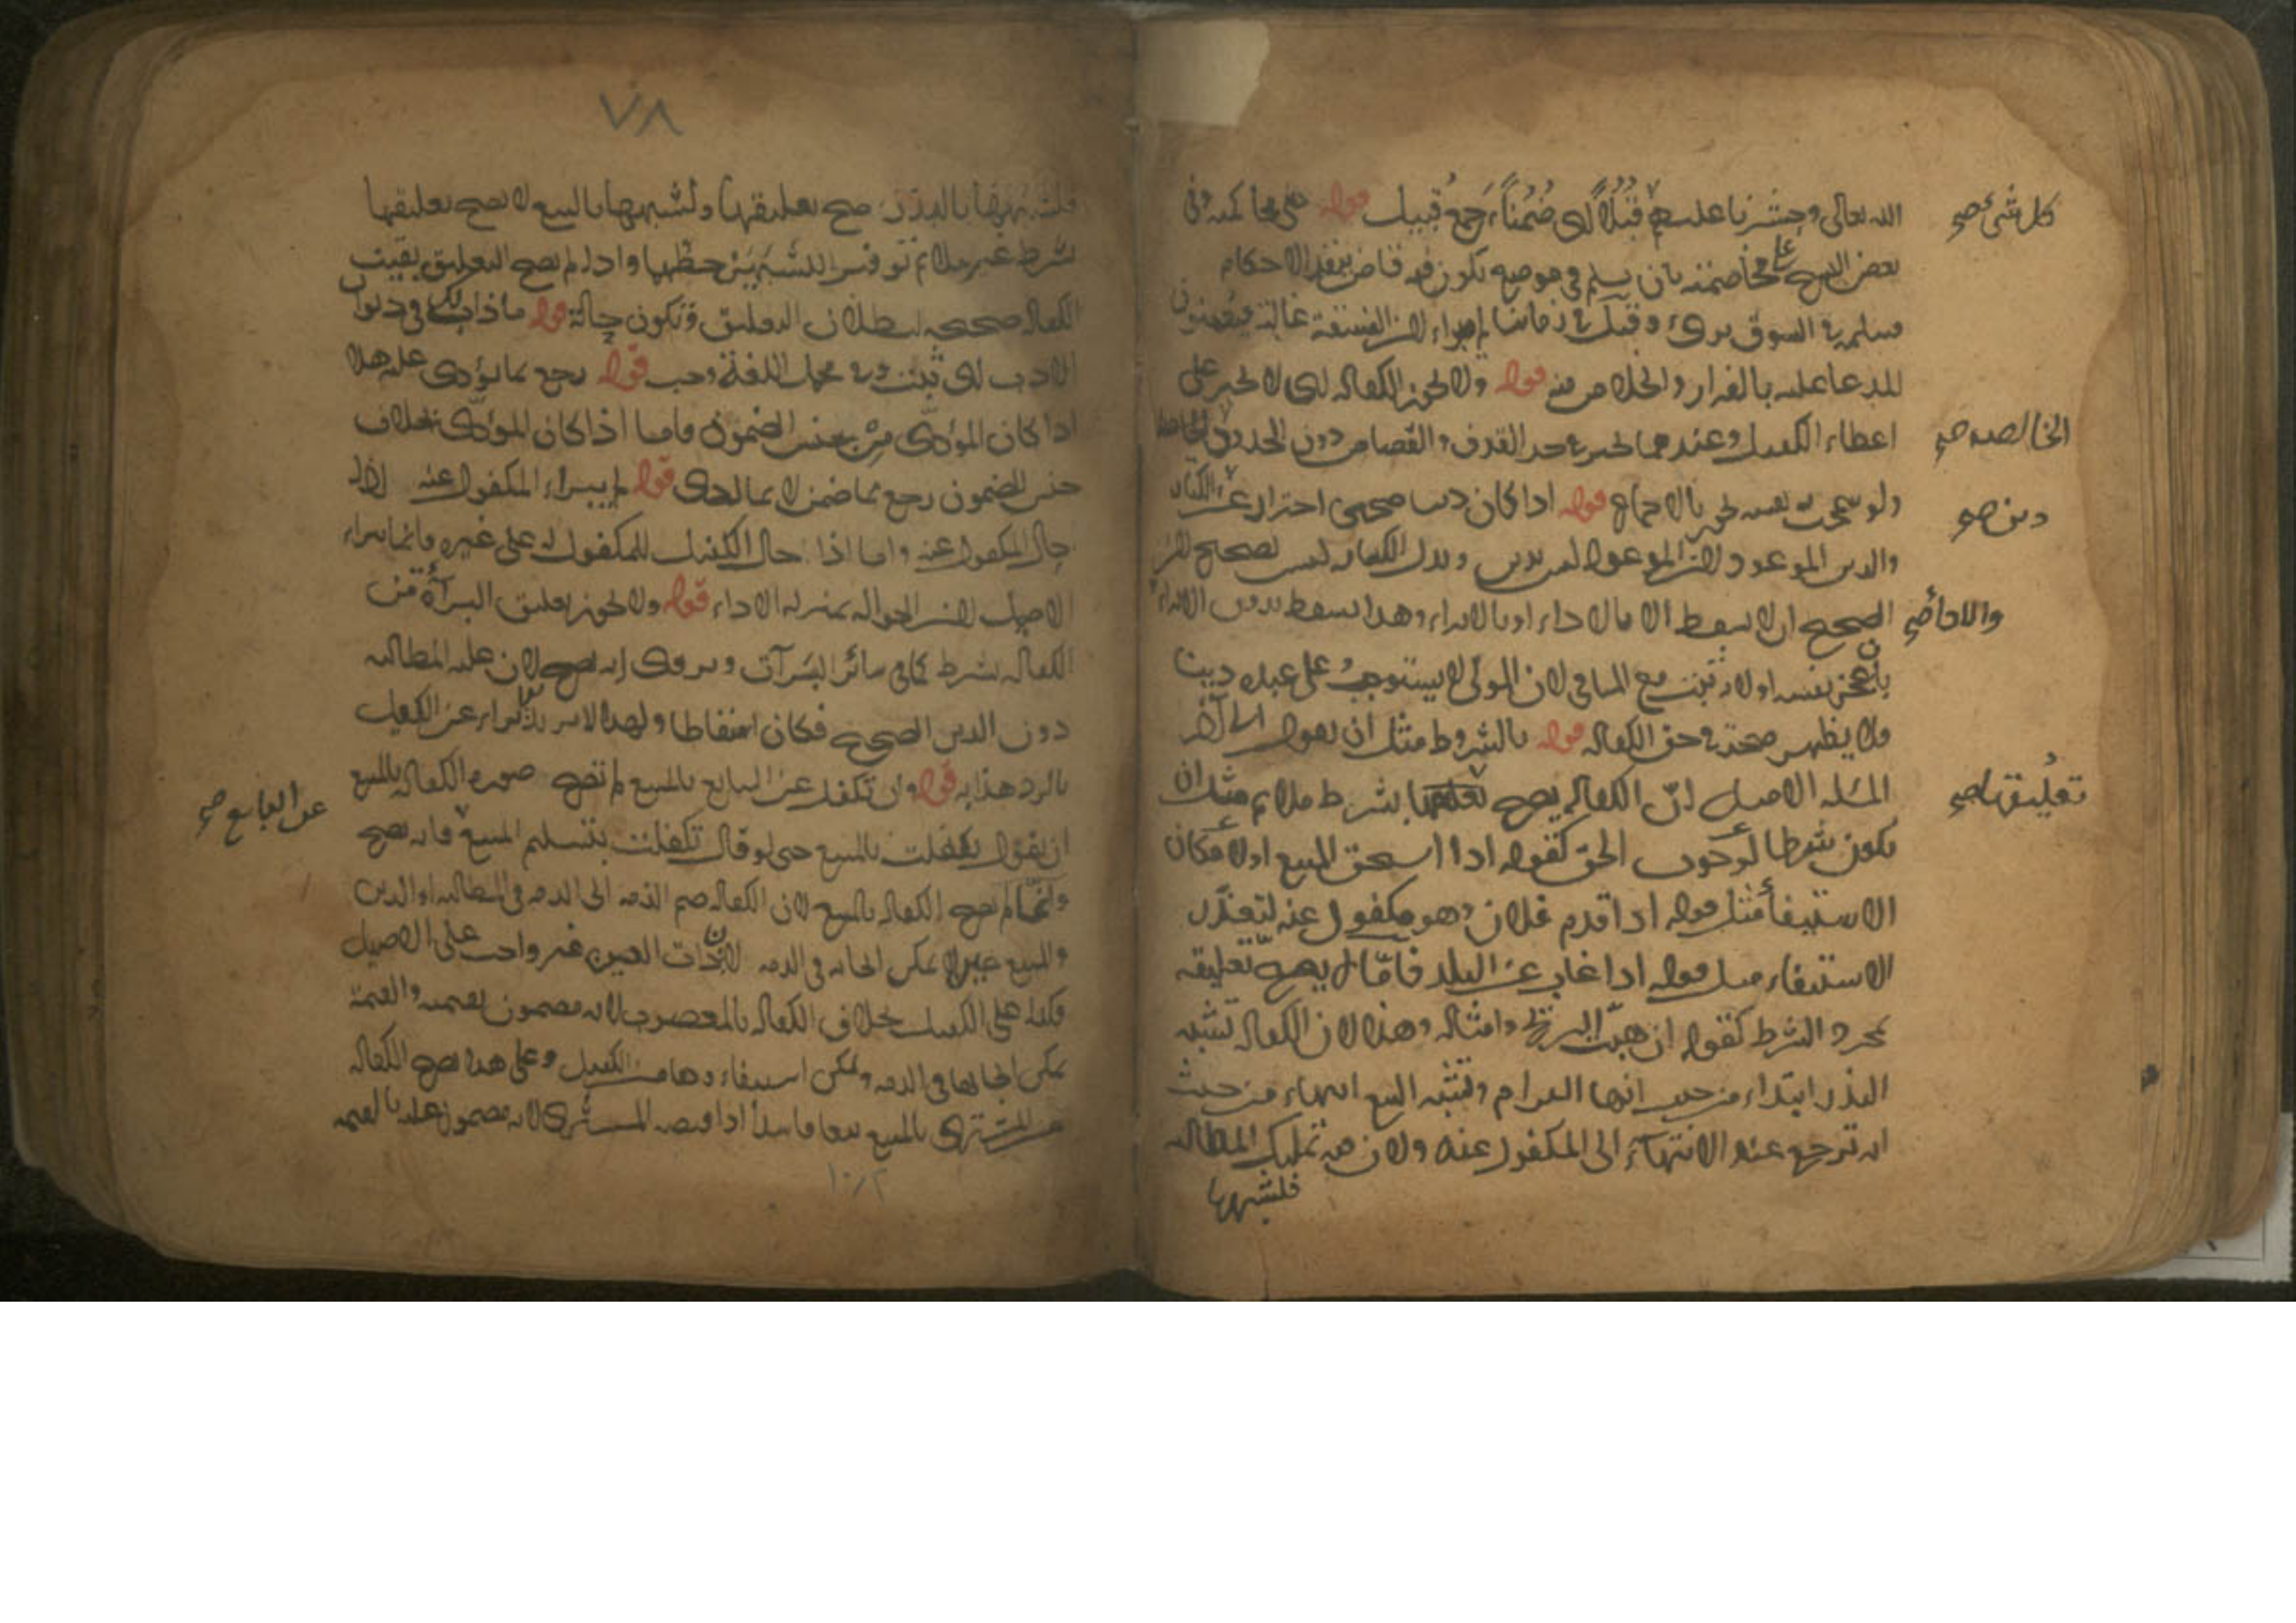 الله تعالى وحشرنا عليهم قبلا اى ضمناء جمع قبيل قوله على محاكمته وفى
كل شئ صح
بعض النسخ على مخاصمته بان يسلم فى موضع يكون فيه قاض ينفذ الاحكام
فسلم فى السوق برئ وقيل فى زماننا لا يبراء لان الفسقة غالبة فيعينون
المدعا عليه بالفرار والخلاص منه قوله ولا تجوز الكفالة اى لا يجبر على
اعطاء الكفيل وعندهما يجبر فى حد القذف والقصاص دون الحدود
الخالصه صح
ولو سمحت نفسه يجوز بالاجماع قوله اذا كان دينا صحيحا احتراز عن الكتابة
دين صح
والدين الموعود لان الموعود ليس بدين وبدل الكتابة ليس بصحيح لان
الصحيح ان لا يسقط الا بالاداء او بالابراء وهذا يسقط بدون الابراء
والاداء صح
بان عجز نفسه او لانه ثبت مع المنافى لان المولى لا يستوجب على عبده دينا
فلا يظهر صحته فى حق الكفالة قوله بالشروط مثل ان يقول الى آخر
المسئلة الاصل ان الكفالة يصح تعلقها بشرط ملائم مثل ان
تعليقها صح
يكون شرطا لوجوب الحق كقوله اذا استحق المبيع او لامكان
الاستيفاء مثل قوله اذا قدم فلان وهو مكفول عنه لتعذر
الاستيفاء مثل قوله اذا غاب عن البلد فاما لا يصح تعليقه
بمجرد الشرط كقوله ان هبت الريح وامثاله وهذا لان الكفالة تشبه
النذر ابتداء من حيث انها التزام وتشبه البيع انتهاء من حيث
انه ترجع عند الانتهاء الى المكفول عنه ولان فيه تمليك المطالبة
فلشبهها
٧٨
فلشبهها بالنذر صح تعليقها ولشبهها بالبيع لا يصح تعليقها
بشرط غير ملائم توفيرا للشبهين حظهما واذا لم يصح التعليق بقيت
الكفالة صحيحه لبطلان التعليق وتكون حالة قوله ماذاب لك فى ديوان
الادب اى ثبت وفى مجمل اللغة وجب قوله رجع بما يؤدى عليه هذا
اذا كان المؤدى من جنس المضمون فاما اذا كان المؤدى بخلاف
جنس المضمون رجع بما ضمن لا بما ادى قوله لم يبراء المكفول عنه اذا لم
يحال المكفول عنه واما اذا احال الكفيل للمكفول له على غيره فانما يبراء
الاصيل لان الحوالة بمنزلة الاداء قوله ولا تجوز تعليق البراءة من
الكفالة بشرط كما فى سائر البرآت ويروى انه يصح لان عليه المطالبه
دون الدين الصحيح فكان اسقاطا ولهذا لا يرتد الابراء عن الكفيل
بالرد هذا يه قوله وان تكفل عن البايع بالمبيع لم تصح صورة الكفالة بالمبيع
ان يقول تكفلت بالمبيع حتى لو قال تكفلت بتسليم المبيع فانه يصح
عن البايع صح
وانما لم يصح الكفالة بالمبيع لان الكفالة ضم الذمة الى الذمه فى المطالبه او الدين
والمبيع عين لا يمكن ايجابه فى الذمه لان ذات العين غير واجب على الاصيل
فكذا على الكفيل بخلاف الكفالة بالمغصوب لانه مضمون بقيمته والقيمة
يمكن ايجابها فى الذمه ويمكن استيفاءوها من الكفيل وعلى هذا تصح الكفالة
عن المشترى بالمبيع بيعا فاسدا اذا قبضه المشترى لانه مضمون عليه بالقيمه